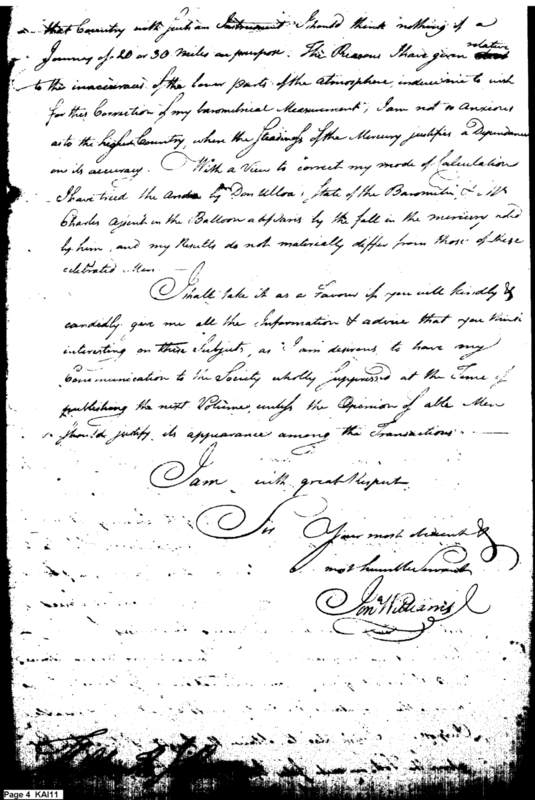 that Country with such an Instrument I should think nothing of a
Journey of 20 or 30 Miles on purpose. The Reasons I have given relative
to the inaccuracies of the lower parts of the atmosphere, induce me to wish
for this Correction of my barometrical Measurement; I am not so anxious
as to the higher Country, where the Readings of the Mercury justifies a Dependance
on its accuracy. With a View to correct my mode of Calculation
I have tried the Andes by Don Ulloa's State of the Barometer, & Mr
Charles ascent in the Balloon at Paris by the fall in the mercury
by him, and my Results do not materially differ from those of these
celebrated Men
I shall take it as a Favour if you will kindly &
candidly give me all the Information & advice that you think
interesting on these Subjects, as I am desirous to have my
Communication to the Society wholly suppressed at the Time of
publishing the next Volume, unless the Opinion of able Men
should justify its appearance among the Transactions.
I am with great Respect
Sir Your most obedient &
most humble Servant
Jona Williams
Page 4 KAI11